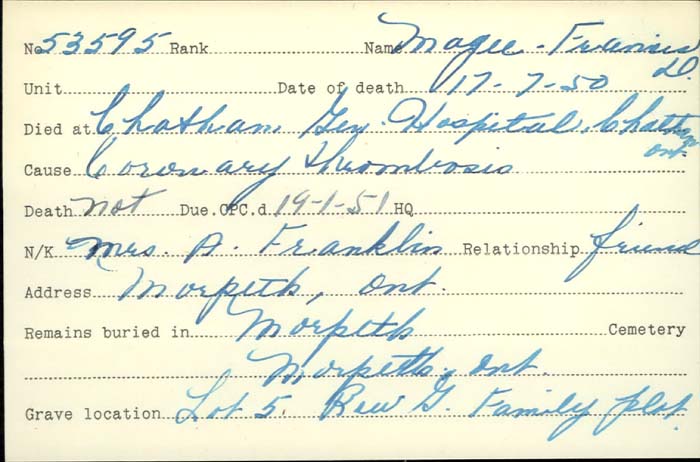 No 53595 Rank Name Magee - Francis D.
Unit Date of death 17-7-50
Died at Chatham Gen. Hospital, Chatham Ont.
Cause Coronary thrombosis
Death not Due.OPC.d 19-1-51 HQ
N/K Mrs. A. Franklin Relationship friend
Address Morpeth, Ont.
Remains buried in Morpeth Cemetery
Morpeth, Ont.
Grave location Lot 5. Row G. Family plot